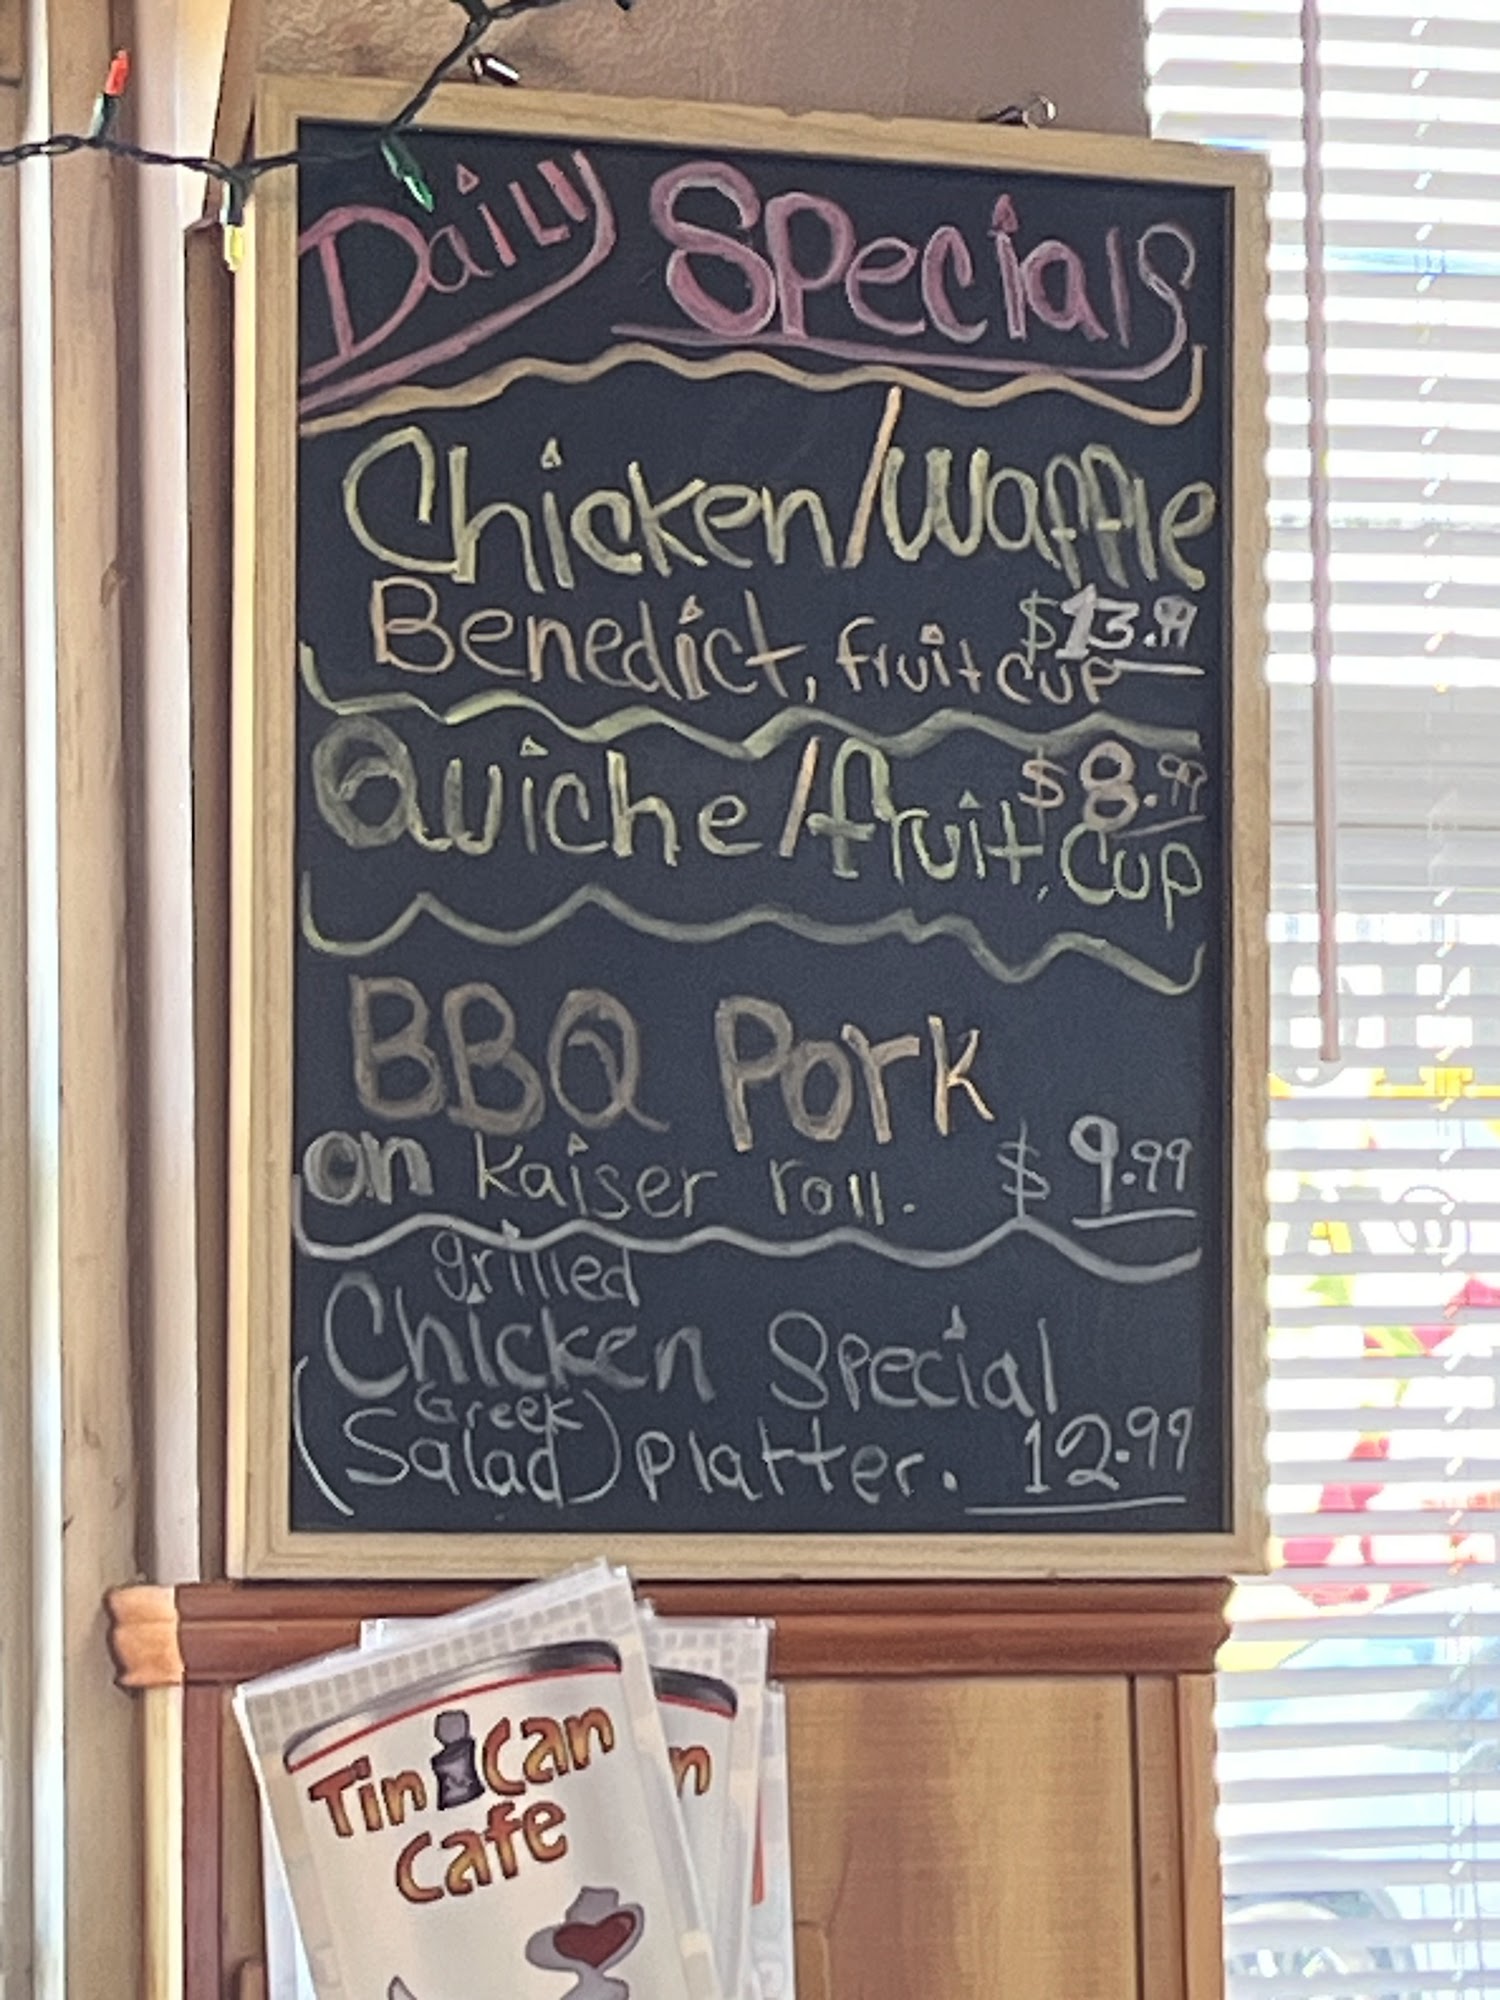 Daily Specials
Chicken/Waffle
Benedict, fruit cup $13.99
Quiche/fruit, cup $8.99
BBQ Pork
on Kaiser roll. $9.99
grilled
Chicken Special
(Greek
Salad) platter. 12.99
Tin Can
Cafe
n